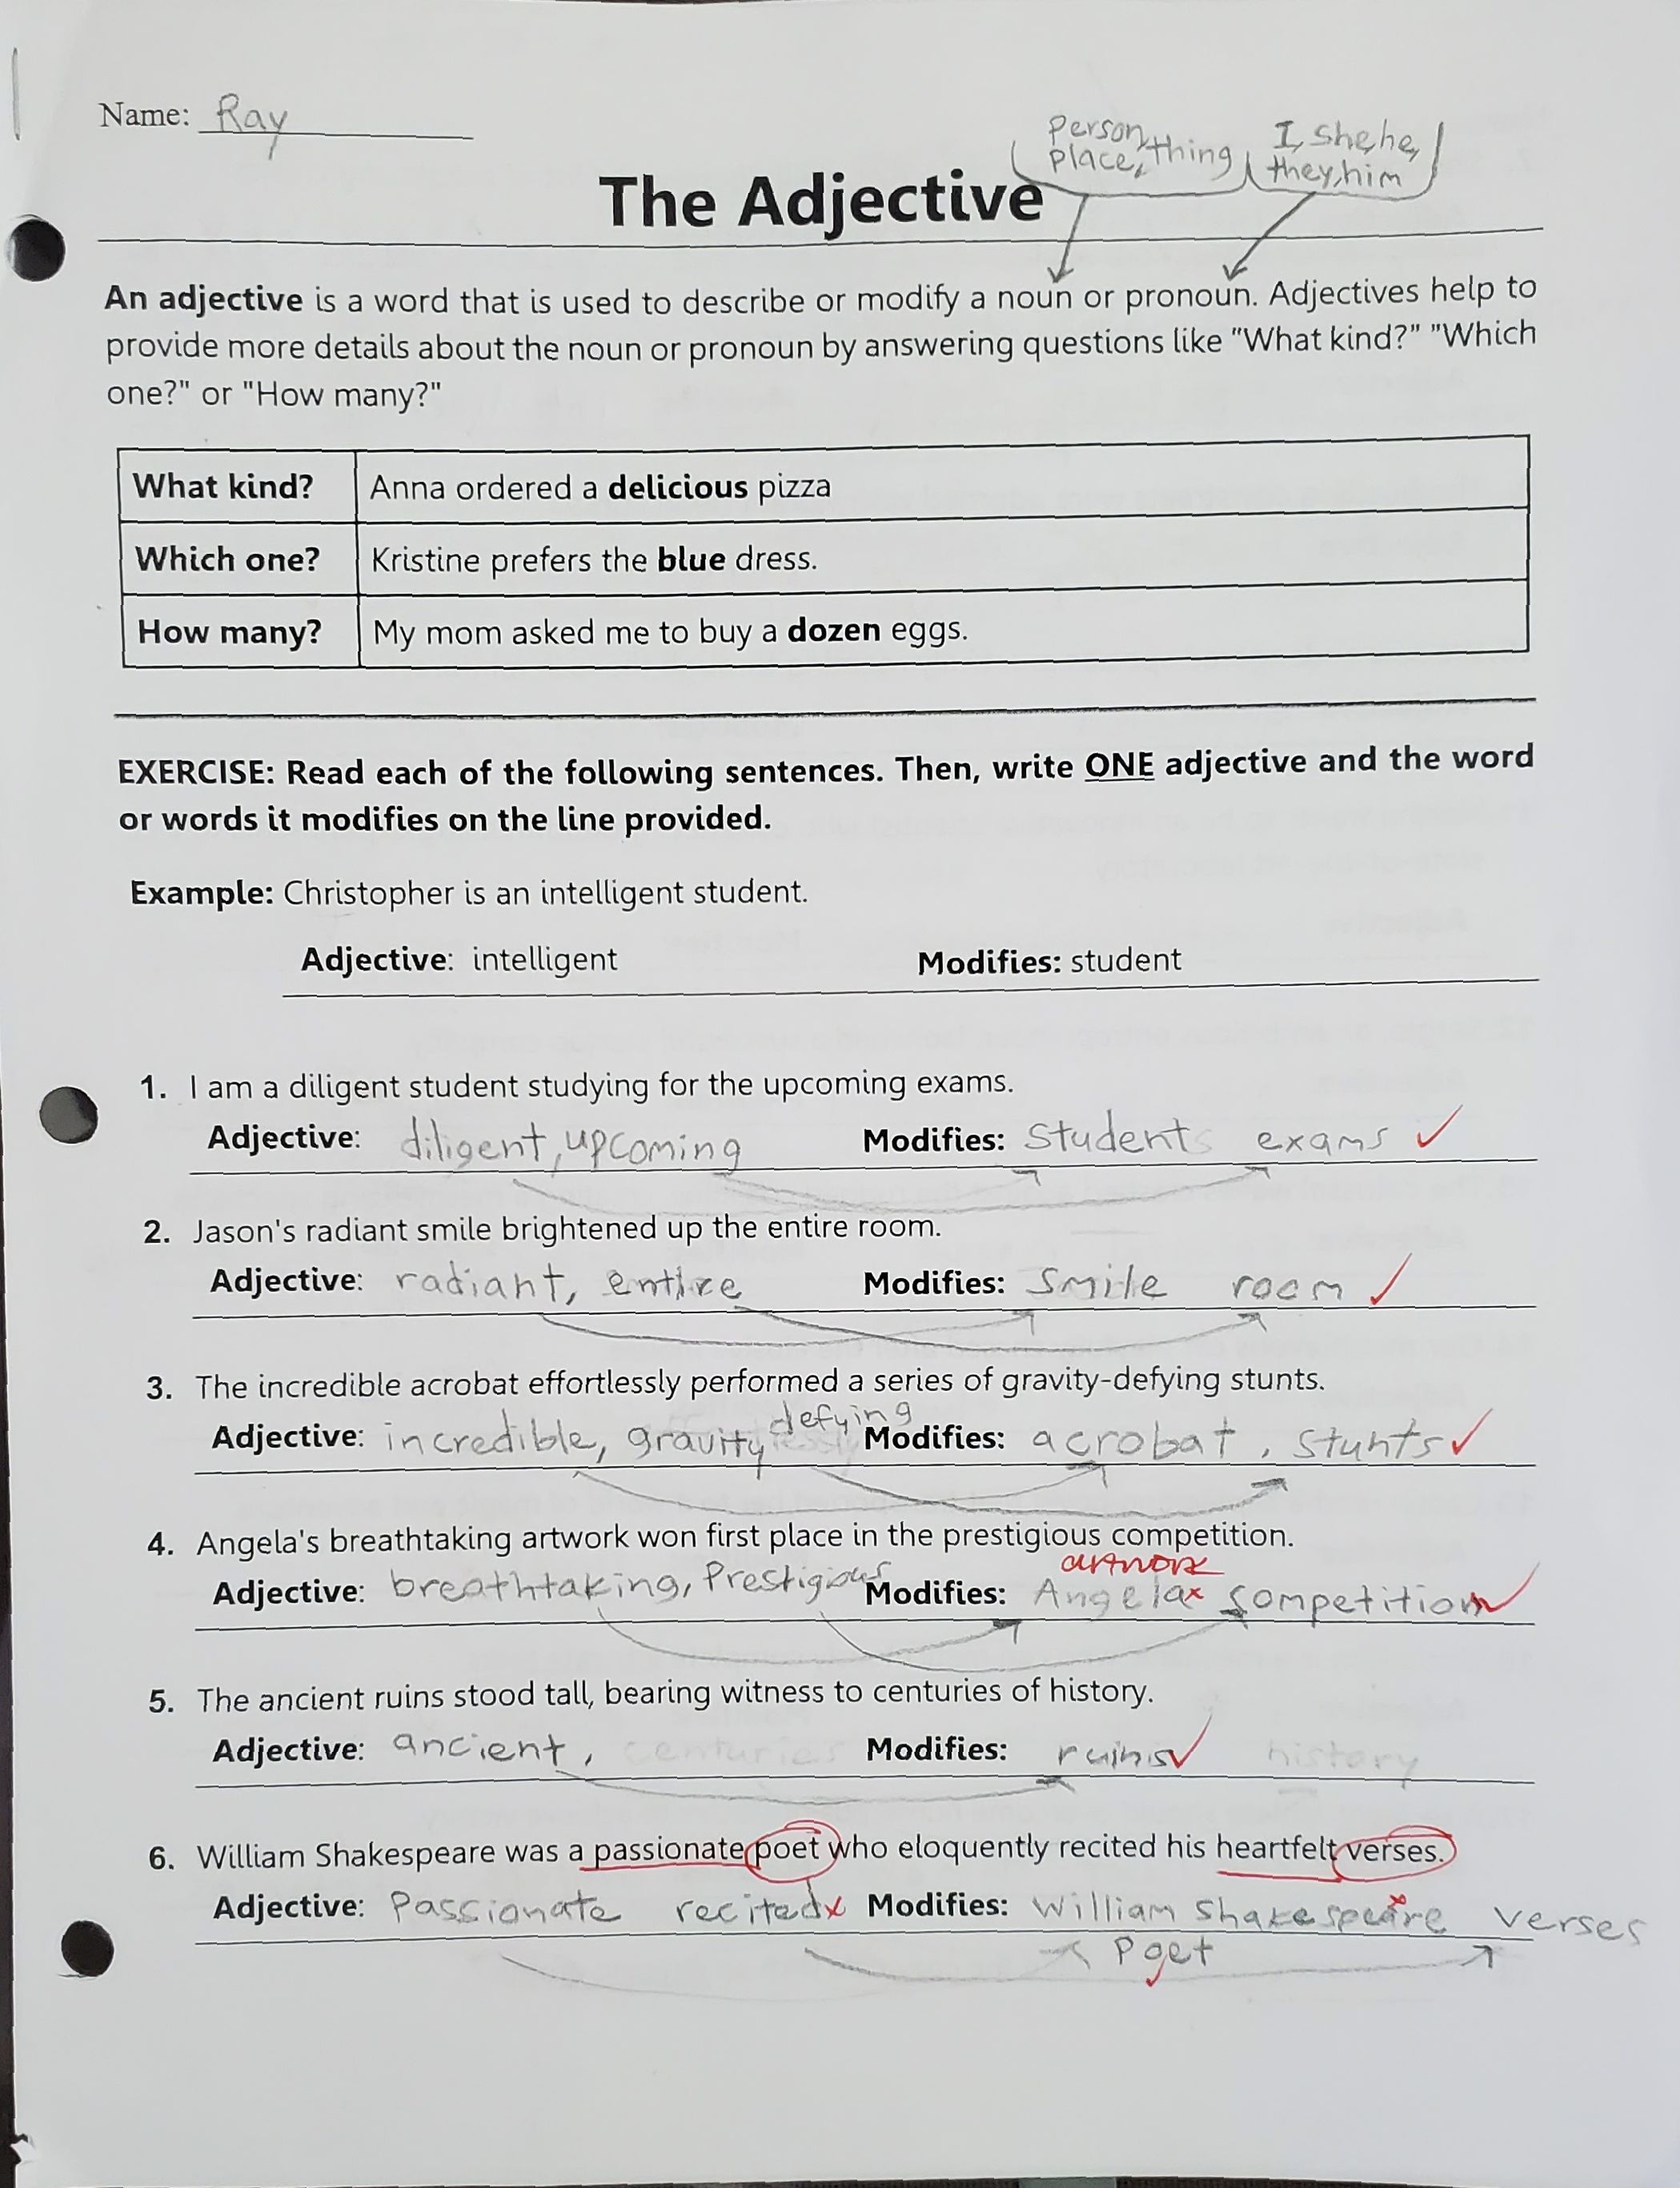 Name: Ray
person, I, she, he,
place, thing they, him
The Adjective
An adjective is a word that is used to describe or modify a noun or pronoun. Adjectives help to
provide more details about the noun or pronoun by answering questions like "What kind?" "Which
one?" or "How many?"
What kind? Anna ordered a delicious pizza
Which one? Kristine prefers the blue dress.
How many? My mom asked me to buy a dozen eggs.
EXERCISE: Read each of the following sentences. Then, write ONE adjective and the word
or words it modifies on the line provided.
Example: Christopher is an intelligent student.
Adjective: intelligent Modifies: student
1. I am a diligent student studying for the upcoming exams.
Adjective: diligent, upcoming Modifies: student exams
2. Jason's radiant smile brightened up the entire room.
Adjective: radiant, entire Modifies: smile room
3. The incredible acrobat effortlessly performed a series of gravity-defying stunts.
defying
Adjective: incredible, gravity Modifies: acrobat, stunts
4. Angela's breathtaking artwork won first place in the prestigious competition.
artwork
Adjective: breathtaking, Prestigious Modifies: Angela competition
5. The ancient ruins stood tall, bearing witness to centuries of history.
Adjective: ancient, centuries Modifies: ruins history
6. William Shakespeare was a passionate poet who eloquently recited his heartfelt verses.
Adjective: Passionate recited Modifies: William Shakespeare verses
Poet